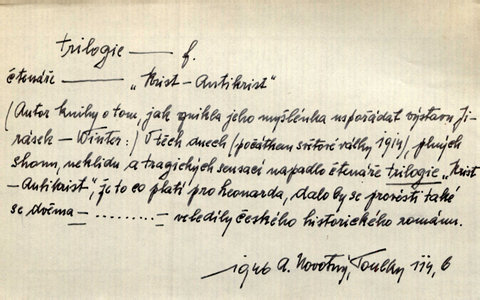 trilogie — f.
čtenáře — „Krist – Antikrist"
(Autor knihy o tom, jak vnikla jeho myšlénka uspořádat výstavu Ji-
rásek – Winter:) V těch dnech (počátkem světové války 1914), plných
shonu, neklidu a tragických sensací napadlo čtenáře trilogie „Krist
– Antikrist", že to co platí pro Leonarda, dalo by se provésti také
se dvěma – ......... – veledíly českého historického románu.
1946 A. Novotný, Toulky 114, 6